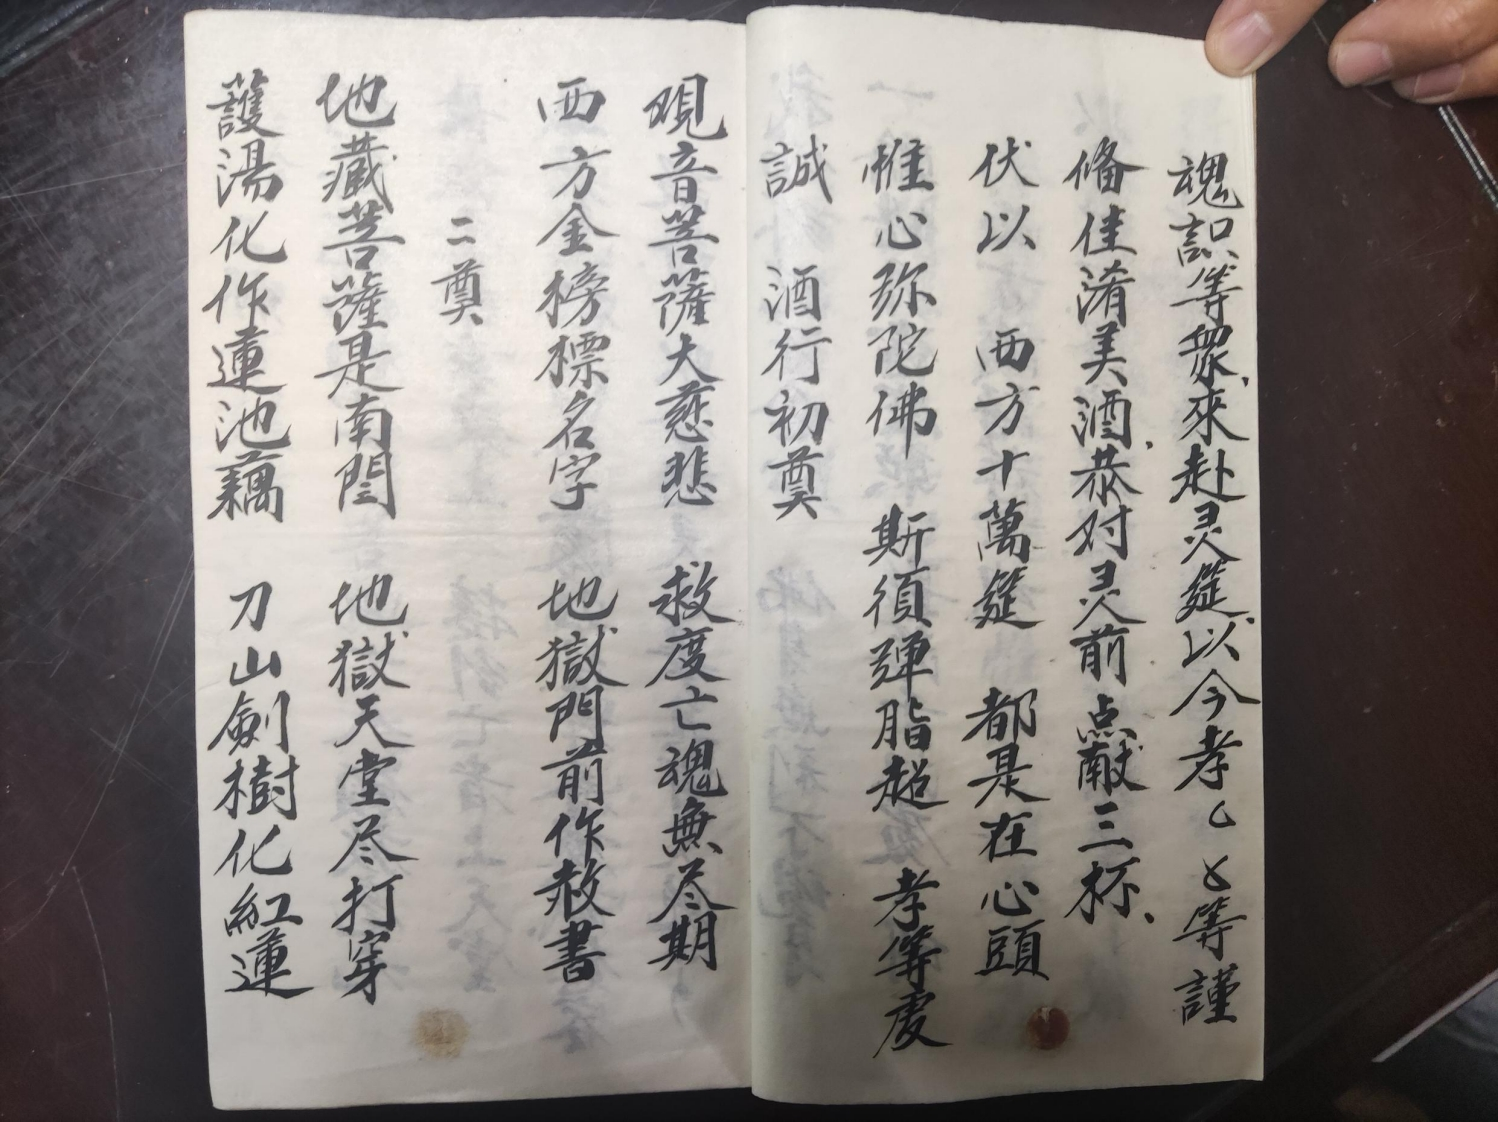 魂識等衆來赴灵筵以今孝〻〻等謹
俻佳淆美酒恭对灵前点献三杯
伏以 西方十萬筵 都是在心頭
惟心弥陀佛 斯須殫脂趍 孝等虔
誠 酒行初奠
观音菩薩大慈悲 救度亡魂無尽期
西方金榜標名字 地獄門前作赦書
二奠
地藏菩薩是南閆 地獄天堂尽打穿
護湯化作蓮池藕 刀山劍樹化紅蓮